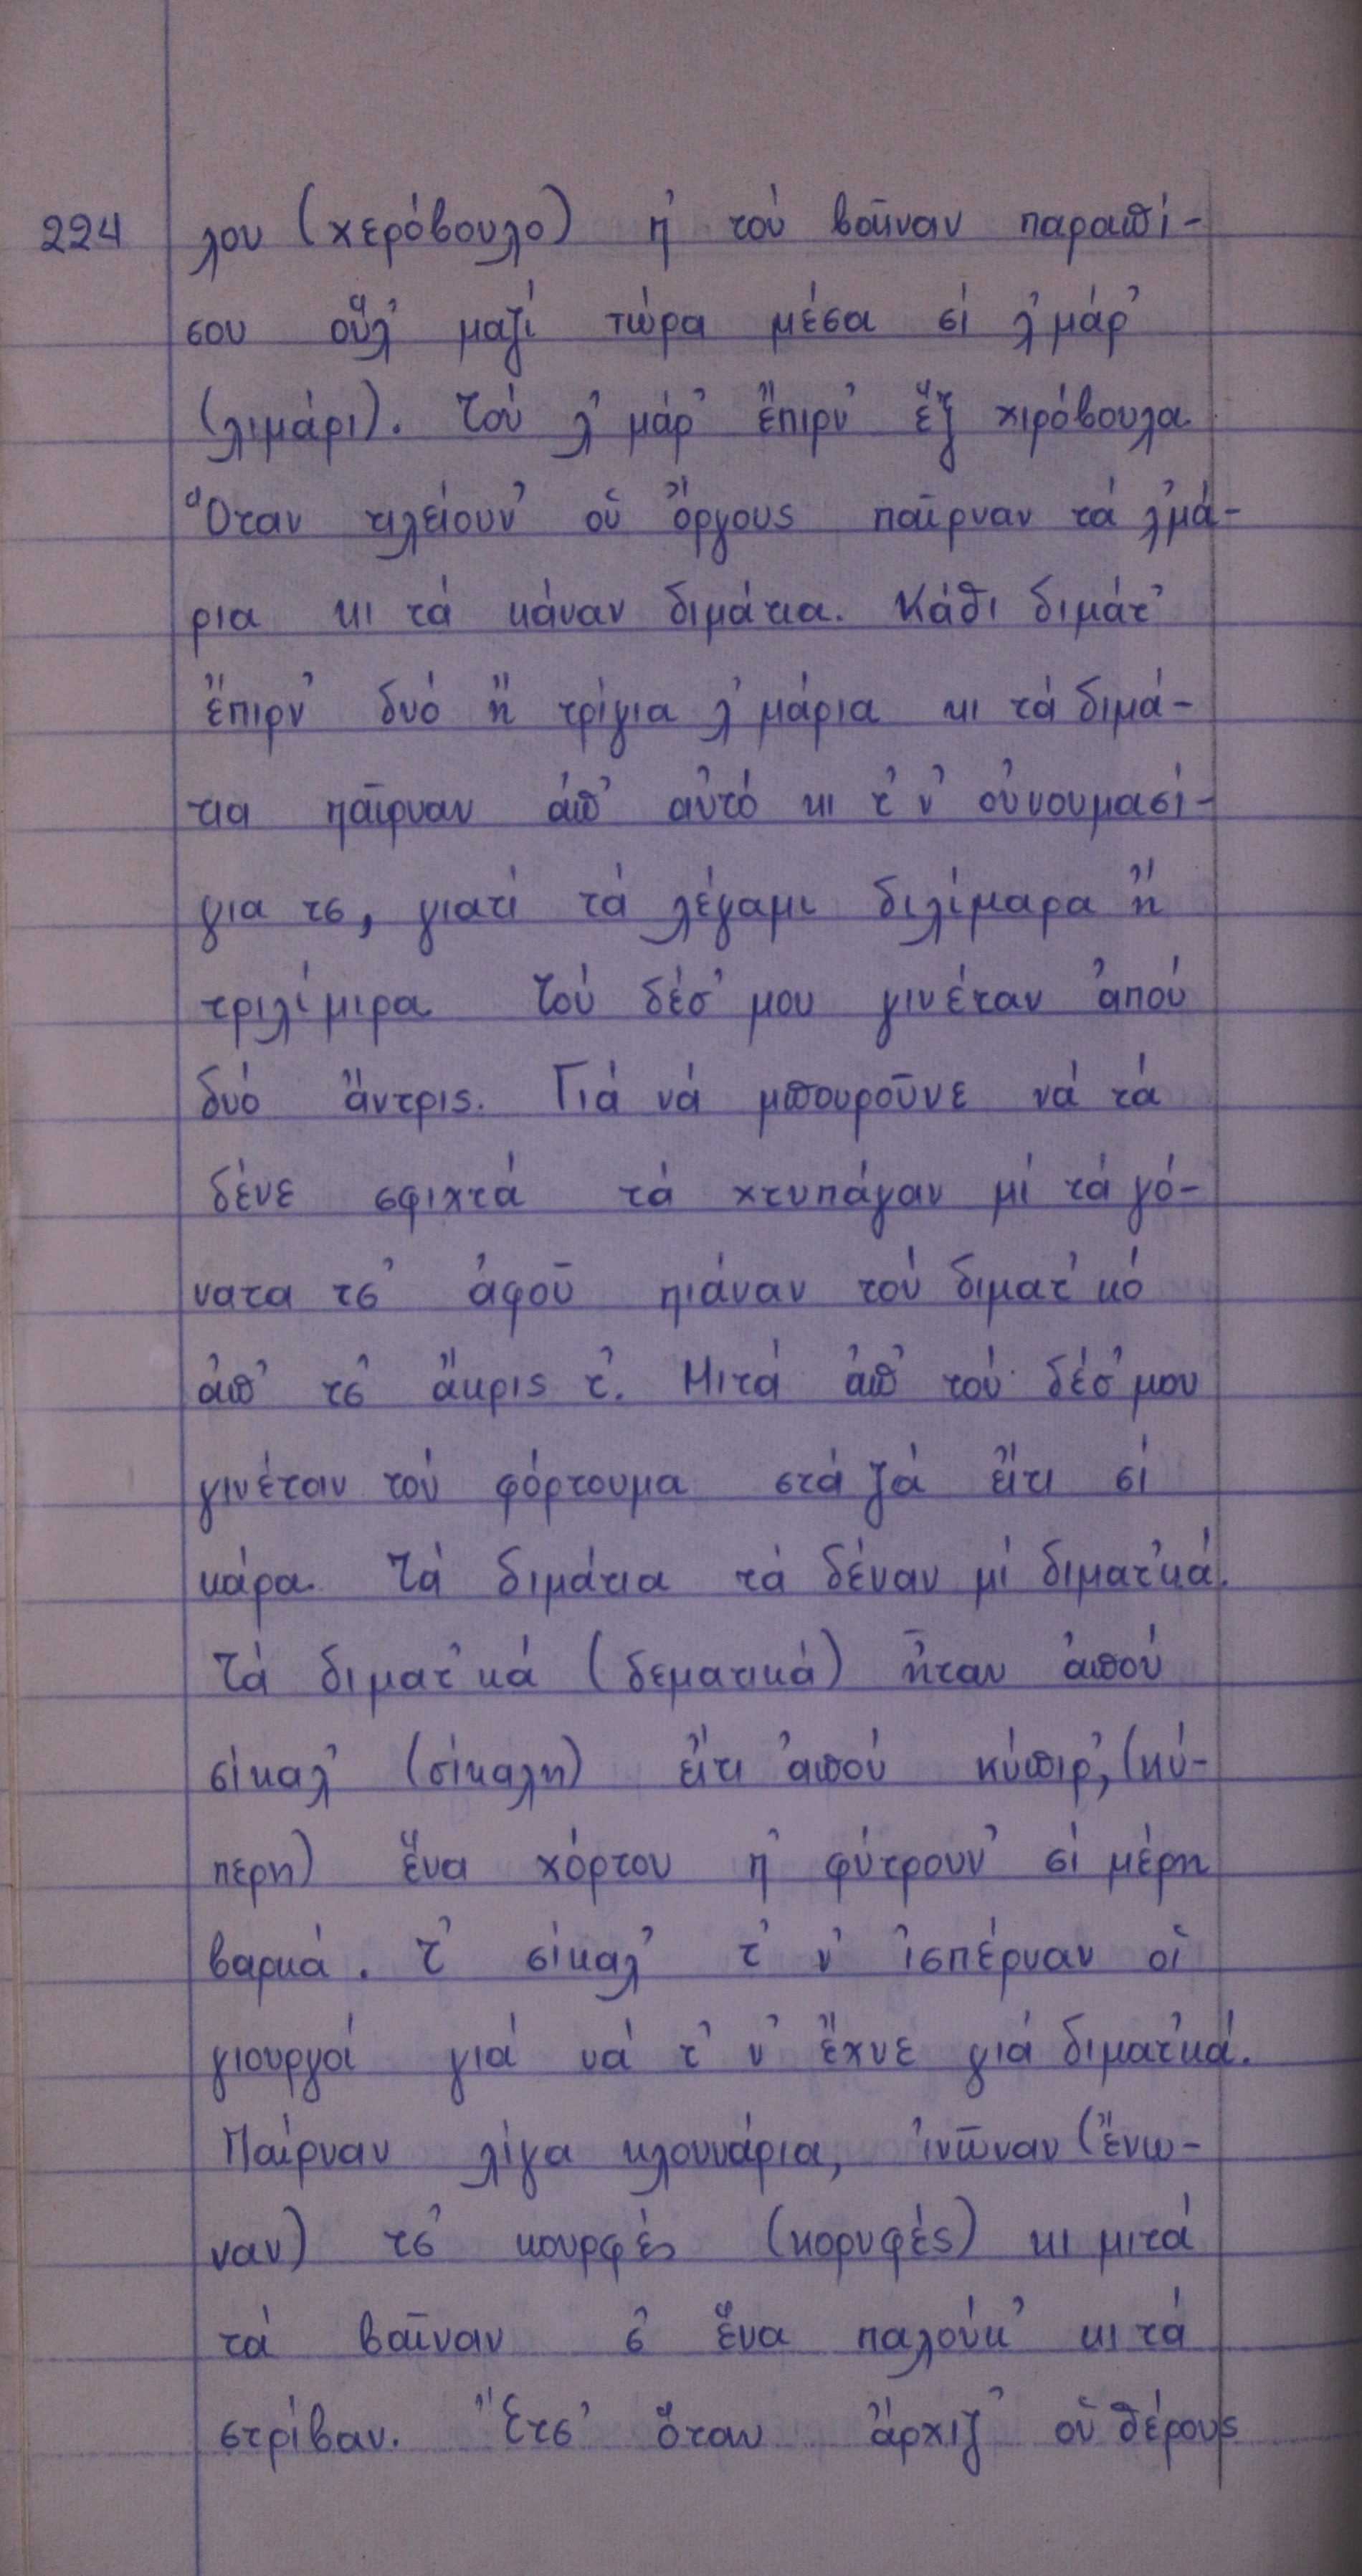 224 λου (χερόβουλο) ἡ τού βαῖναν παραπί-
σου οὕλ' μαζί τώρα μέσα σί λ'μάρ'
(λιμάρι). Τού λ'μάρ' ἔπιρν' ἕξ χιρόβουλα
Ὅταν τιλείουν' οὑ ὄργους παῖρναν τά λ'μά-
ρια κι τά κάναν διμάτια. Κάθι διμάτ'
ἔπιρν' δυό ἤ τρίγια λ'μάρια κι τά διμά-
τια παῖρναν ἀπ' αὐτό κι τ'ν' οὐνουμασί-
για τς, γιατί τά λέγαμι διλίμαρα ἤ
τριλίμιρα Τού δέσ'μου γινέταν ἀπού
δυό ἄντρις. Γιά νά μπουροῦνε νά τά
δένε σφιχτά τά χτυπάγαν μί τά γό-
νατα τς' ἀφοῦ πιάναν τού διματ'κό
ἀπ' τς' ἄκρις τ'. Μιτά ἀπ' τού δέσ'μου
γινέταν τού φόρτουμα στά ζά εἴτι σί
κάρα. Τά διμάτια τά δέναν μί διματ'κά.
Τά διματ'κά (δεματικά) ἦταν ἀπού
σίκαλ' (σίκαλη) εἴτι ἀπού κύπιρ', (κύ-
περη) ἕνα χόρτου ἡ φύτρουν' σί μέρη
βαρκά. Τ' σίκαλ' τ'ν' ἰσπέρναν οἱ
γιουργοί γιά νά τ'ν' ἔχνε γιά διματ'κά.
Παίρναν λίγα κλουνάρια, ἰνῶναν (ἔνω-
ναν) τς' κουρφές (κορυφές) κι μιτά
τά βαῖναν σ' ἕνα παλούκ' κι τά
στρίβαν. Ἔτς' ὅταν ἄρχιζ' οὑ θέρους